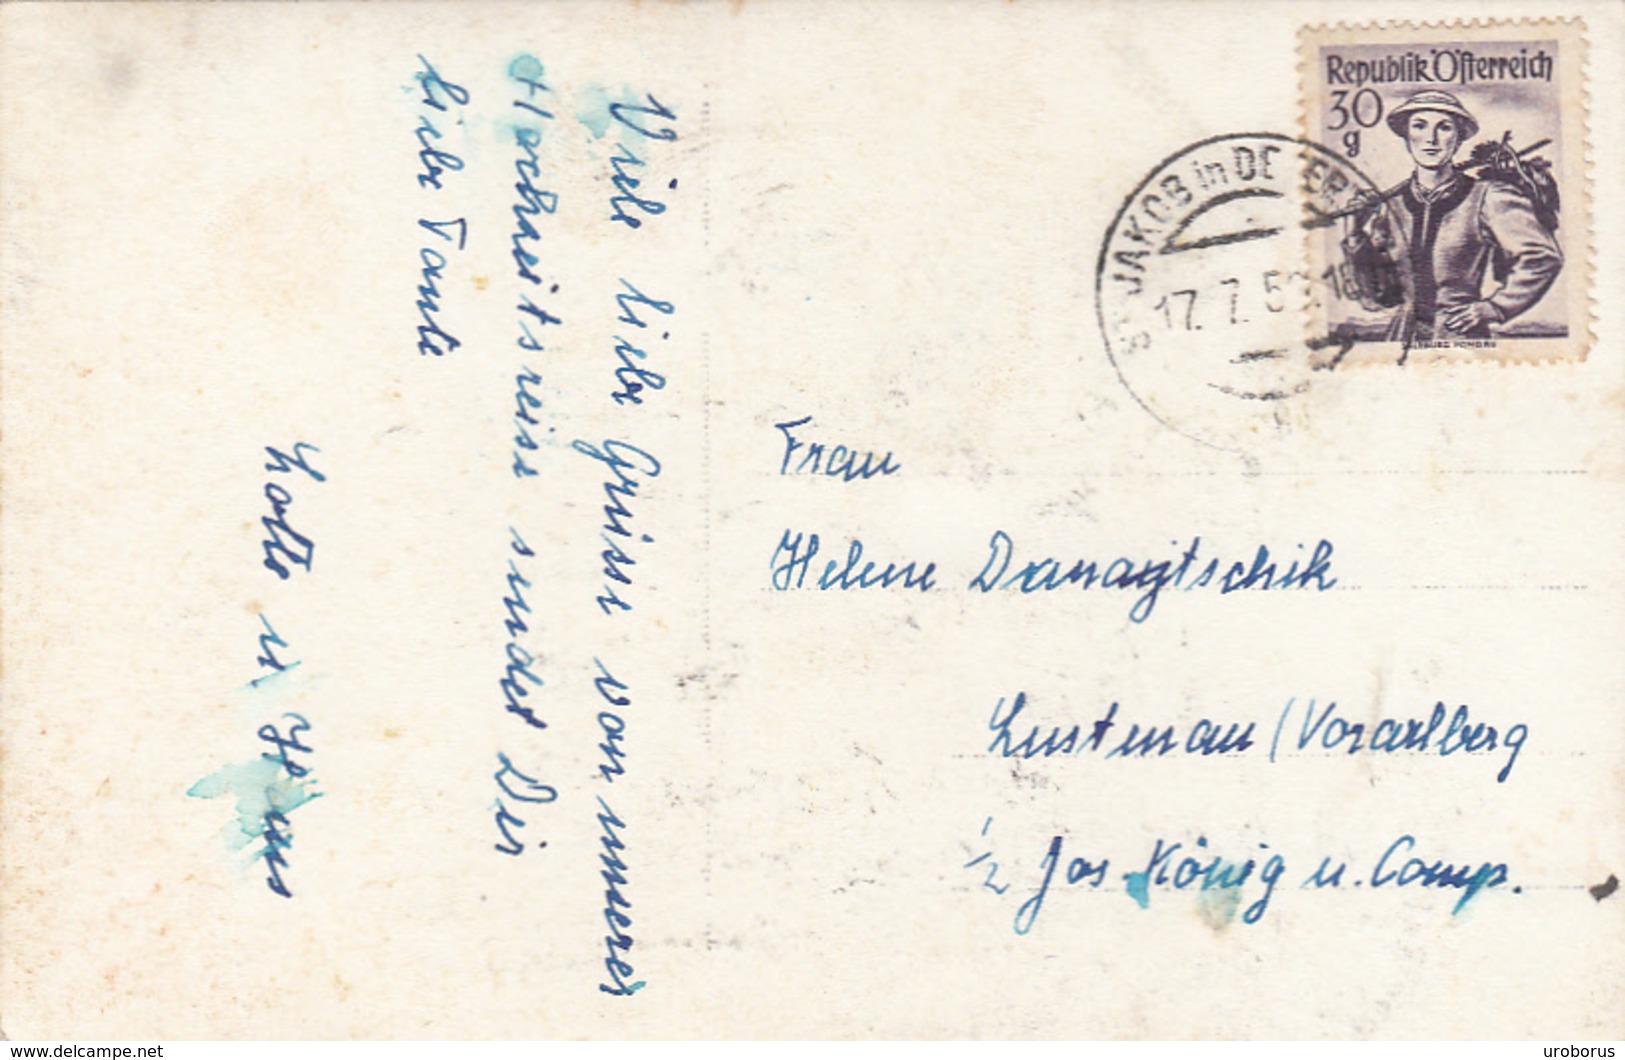 Viele liebe Grüsse von unserer
Hochzeitsreise sendet Dir
liebe Tante
Lotte u. Hans
Republik Österreich
30
g
ST. JAKOB in DE
17. 7. 5
18
Frau
Helene
Lustenau / Vorarlberg
Jos. König u. Comp.
www.delcampe.net
uroborus